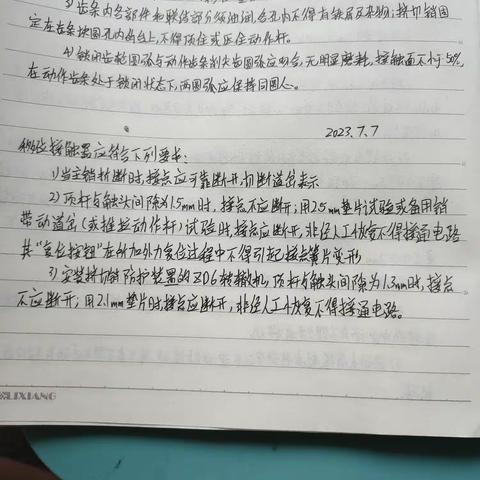 3)齿条内各部件和联结部分须油润,各孔内不得有铁屑及杂物;挤切销固
定在齿条块圆孔内的台上,不得顶住或压住动作杆。
4)锁闭齿轮圆弧与动作齿条削尖齿圆弧应吻合,无明显磨耗,接触面不小于50%,
在动作齿条处于锁闭状态下,两圆弧应保持同圆心。
2023.7.7
移位接触器应符合下列要求:
1)当主销折断时,接点应可靠断开,切断道岔表示
2)顶杆与触头间隙为1.5mm时,接点不应断开;用2.5mm垫片试验或备用销
带动道岔(或推拉动作杆)试验时,接点应断开,非经人工恢复不得接通电路
其“复位按钮”在所加外力复位过程中不得引起接点簧片变形
3)安装挤切销防护装置的ZD6转辙机,顶杆与触头间隙为1.3mm时,接点
不应断开;用2.1mm垫片时接点应断开,非经人工恢复不得接通电路。
LIXIANG